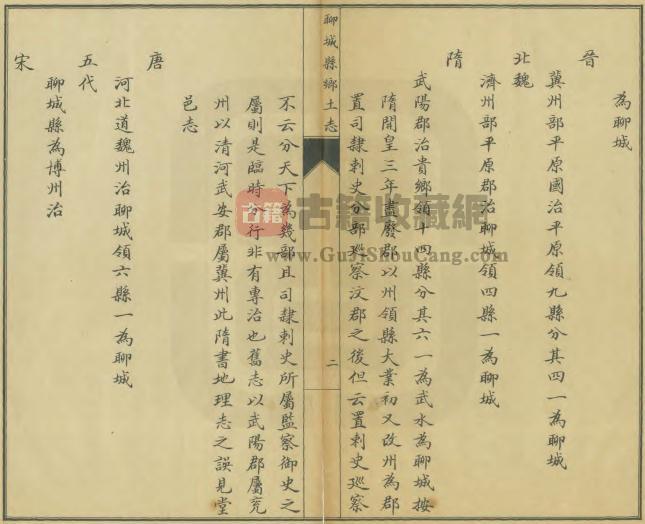 為聊城
晉
冀州部平原國治平原領九縣分其四一為聊城
北魏
濟州部平原郡治聊城領四縣一為聊城
隋
武陽郡治貴鄉領十四縣分其六一為武水為聊城按
隋開皇三年盡廢郡以州領縣大業初又改州為郡
置司隸刺史分部巡察汶郡之後但云置刺史巡察
聊城縣鄉土志
二
不云分天下為幾部且司隸刺史所屬監察御史之
屬則是臨時分行非有專治也舊志以武陽郡屬兗
州以清河武安郡屬冀州此隋書地理志之誤見堂
邑志
唐
河北道魏州治聊城領六縣一為聊城
五代
聊城縣為博州治
宋
古籍
古籍收藏網
www.GuJiShouCang.com